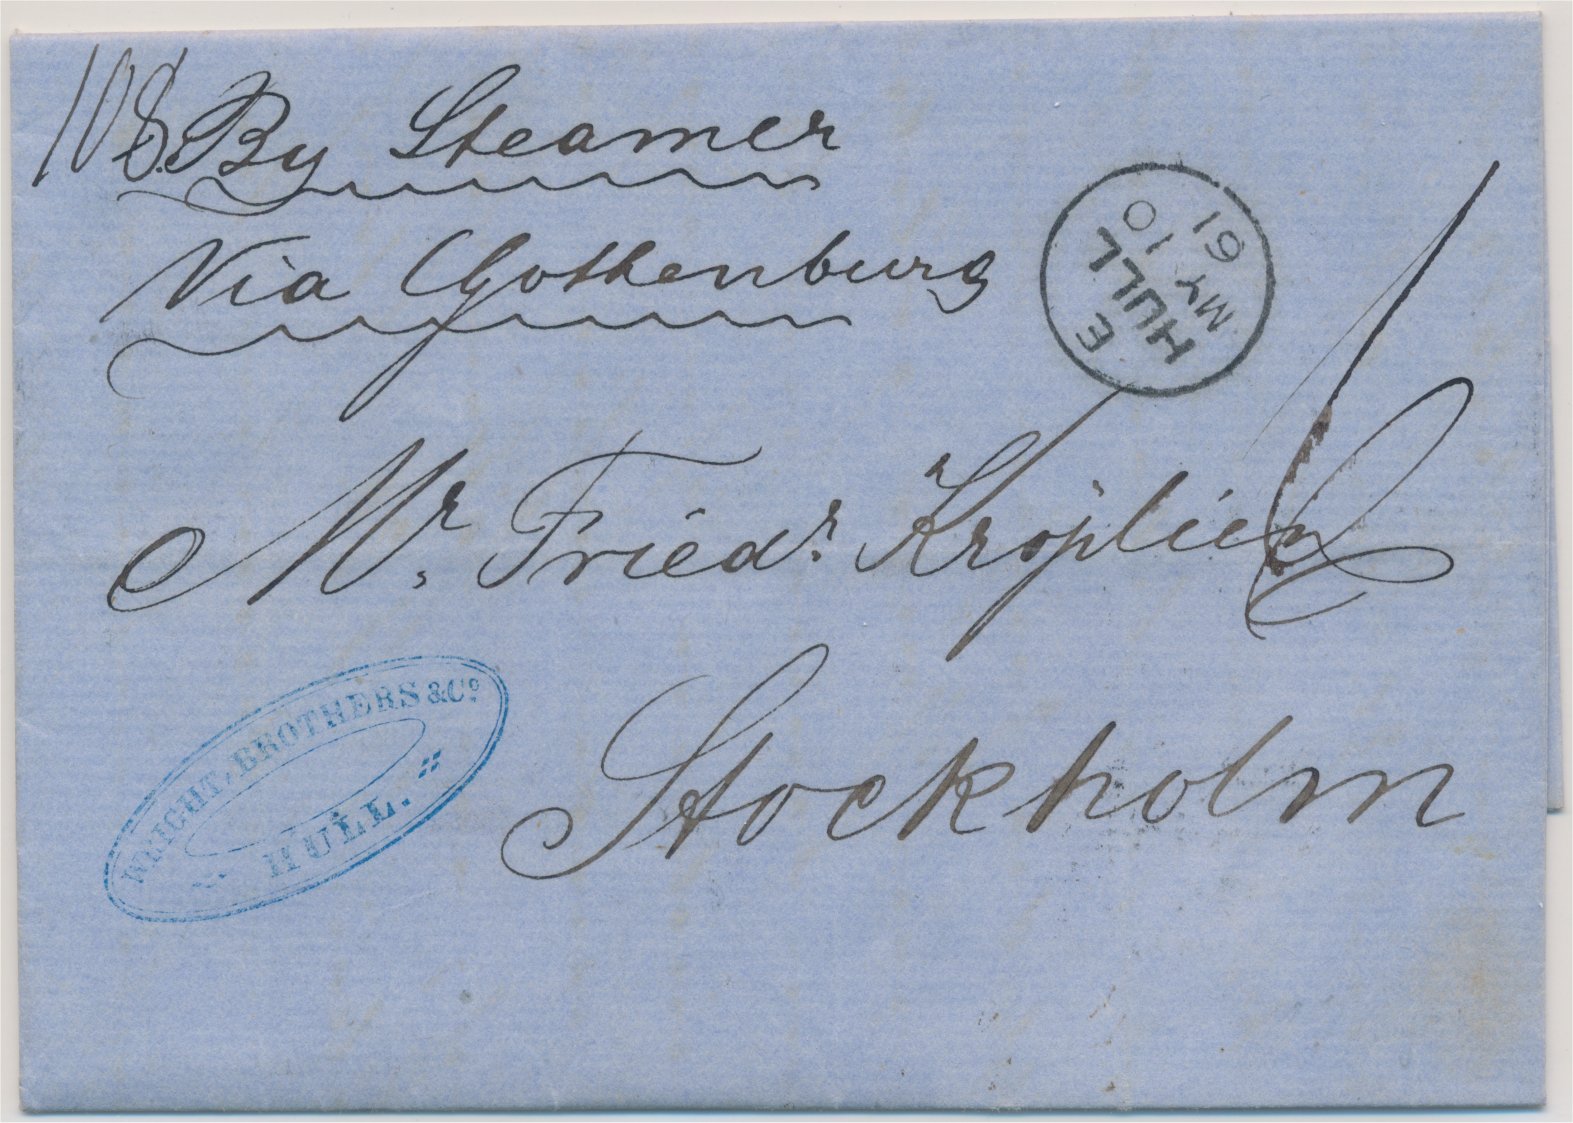 108. By Steamer
Via Gothenburg
E
HULL
MY 10
61
Mr. Friedr. Kröplien
Stockholm
WRIGHT, BROTHERS & Co
HULL.